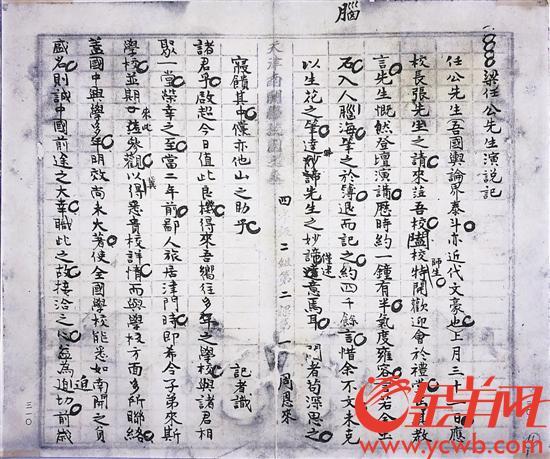 腦
梁任公先生演說記
任公先生吾國輿論界泰斗亦近代文豪也上月三十一日應
校長張先生之請來蒞吾校師生特開歡迎會於禮堂教
言先生慨然登壇演講歷時約一鐘有半氣度雍容言若金
石入人腦海筆之於簿退而記之約四千餘言惜余不文未克
以生花之筆達先生之妙諦僅達意焉耳閱者苟深思之
寢饋其中僕亦他山之助乎
記者識
天津南開學校國文卷
四二組第二第一周恩來
諸君乎啟超今日值此良機得來吾嚮往多年之學校與諸君相
聚一堂榮幸之至當二年前鄙人旅居津門時即希令子弟來斯
學校並期來此參觀以冀得悉貴校詳情而與學校方面多所聯絡
蓋國中興學多年明效尚未大著使全國學校能悉如南開之負
盛名則誠中國前途之大幸職此之故接洽之心每為迫切前歲
三一〇
金羊网
www.ycwb.com